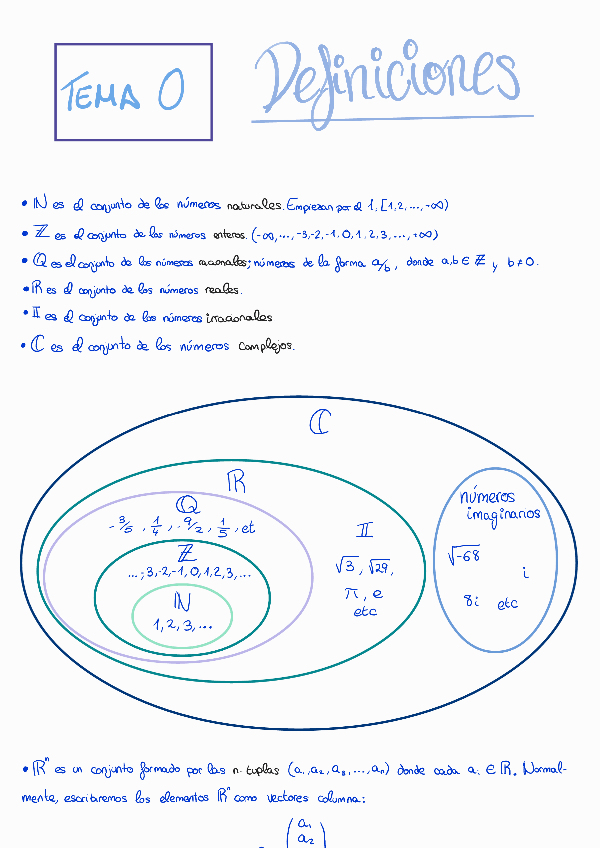 TEMA 0
Definiciones
• ℕ es el conjunto de los números naturales. Empiezan por el 1, [1,2, ..., +∞)
• ℤ es el conjunto de los números enteros. (-∞, ..., -3,-2,-1,0,1,2,3, ..., +∞)
• ℚ es el conjunto de los números racionales; números de la forma a/b, donde a,b ∈ ℤ y b≠0.
• ℝ es el conjunto de los números reales.
• 𝕀 es el conjunto de los números irracionales
• ℂ es el conjunto de los números complejos.
ℂ
ℝ
ℚ
-3/5, 1/4, -9/2, 1/5, et
ℤ
...,-3,-2,-1,0,1,2,3,...
ℕ
1,2,3,...
𝕀
√3, √29,
π, e
etc
números
imaginarios
√-68
i
8i etc
• ℝⁿ es un conjunto formado por las n-tuplas (a₁,a₂,a₃,...,aₙ) donde cada aᵢ ∈ ℝ. Normal-
mente, escribiremos los elementos ℝⁿ como vectores columna:
a₁
a₂